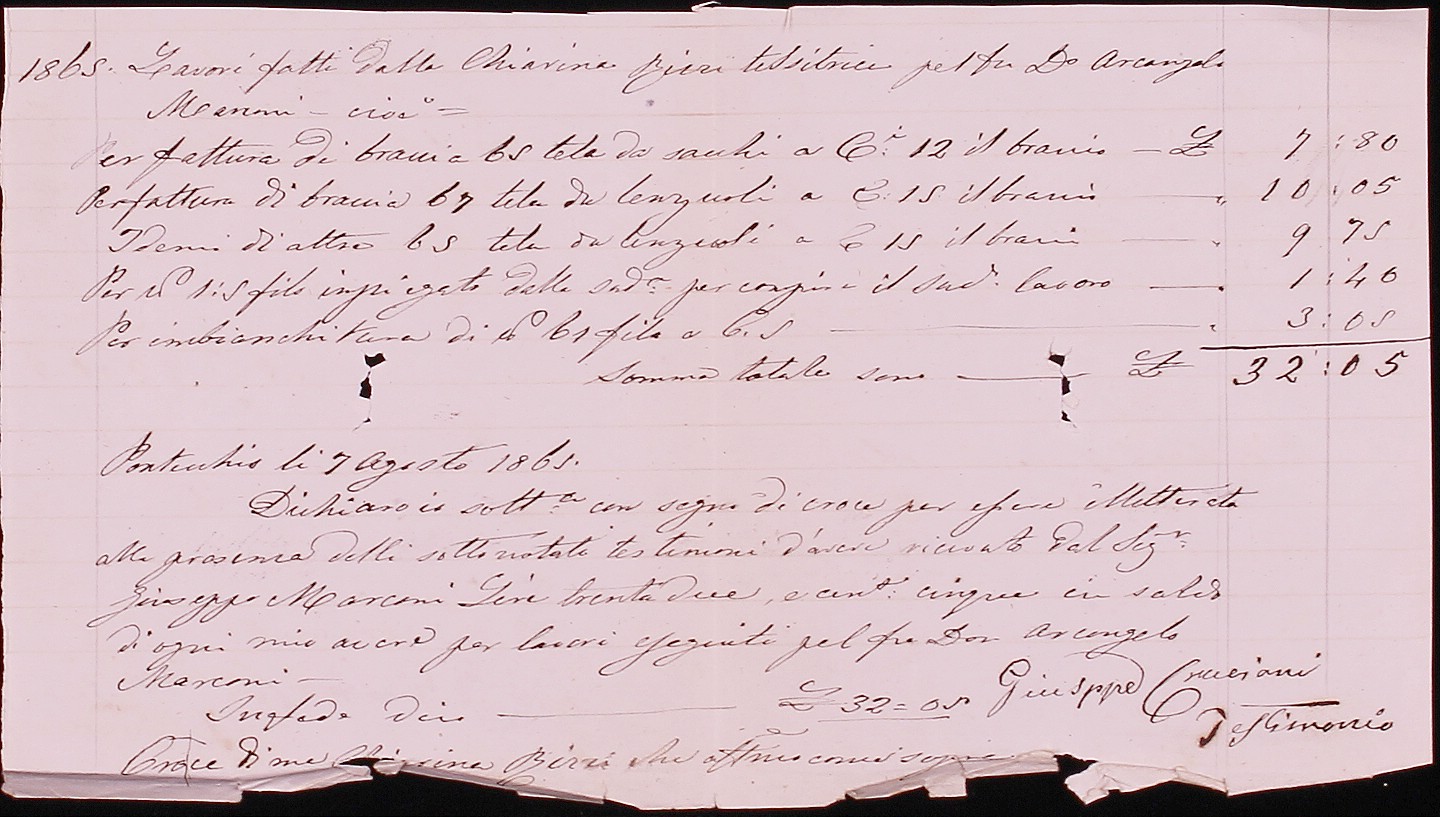 1865. Lavori fatti dalla Chiarina Bizzi tessitrice pel fu Do Arcangelo
Marconi - cioè =
Per fattura di braccia 65 tela da sacchi a C.i 12 il braccio - £ 7 : 80
Per fattura di braccia 67 tela da lenzuoli a C. 15 il braccio — „ 10 : 05
Idem di altre 65 tela da lenzuoli a C 15 il bracci — „ 9 75
Per 1:5 filo impiegato dalla sud.a per compire il sud.o lavoro — „ 1 : 40
Per imbianchitura di 61 filo a C. 5 — „ 3 : 05
Somma totale sono — £ 32 : 05
Pontecchio li 7 Agosto 1865.
Dichiaro io sott.a con segno di croce per essere illetterata
alla presenza delli sottonotati testimoni d'avere ricevuto dal Sig.r
Giuseppe Marconi Lire trentadue, e cent.i cinque in saldo
di ogni mio avere per lavori eseguiti pel fu Don Arcangelo
Marconi -
In fede dico — £ 32 = 05 Giuseppe Cruciani
Testimonio
Croce di me Chiarina Bizzi che affermo come sopra